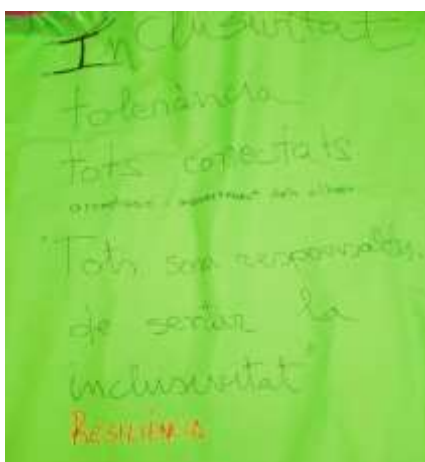 Inclusivitat
tolerància
tots conectats
"Tots som responsables
de sentir la
inclusivitat"
RESILIÈNCIA